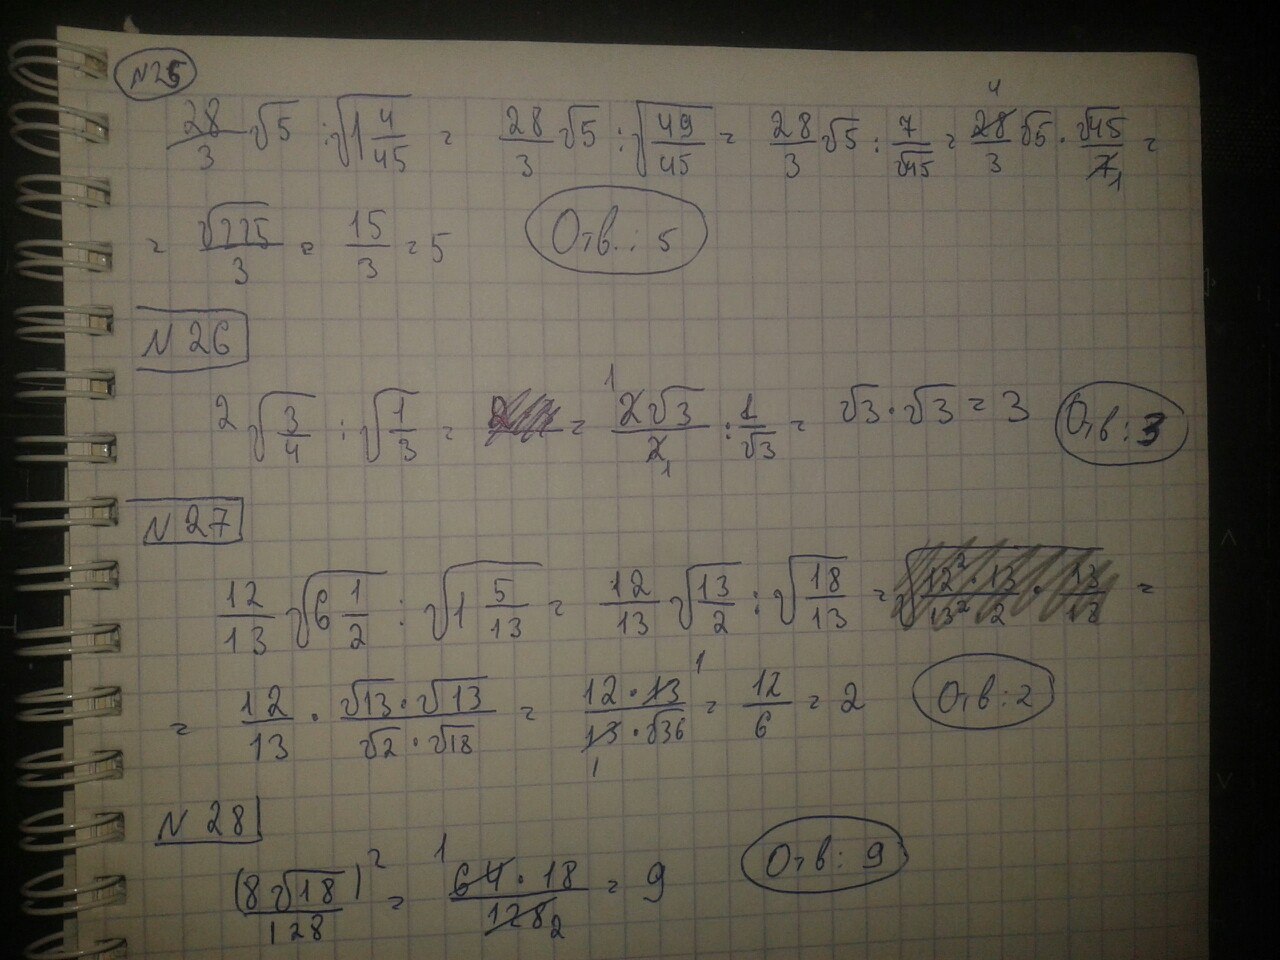 N25
28/3 √5 : √(1 4/45) = 28/3 √5 : √(49/45) = 28/3 √5 : 7/√45 = 28/3 √5 · √45/7 =
= √225/3 = 15/3 = 5 Отв.: 5
N 26
2 √(3/4) : √(1/3) = = 2√3/2 : 1/√3 = √3 · √3 = 3 Отв: 3
N 27
12/13 √(6 1/2) : √(1 5/13) = 12/13 √(13/2) : √(18/13) = √(12²·13/13²·2 · 13/18) =
= 12/13 · √13·√13/√2·√18 = 12·13/13·√36 = 12/6 = 2 Отв: 2
N 28
(8√18)²/128 = 64·18/128 = 9 Отв: 9